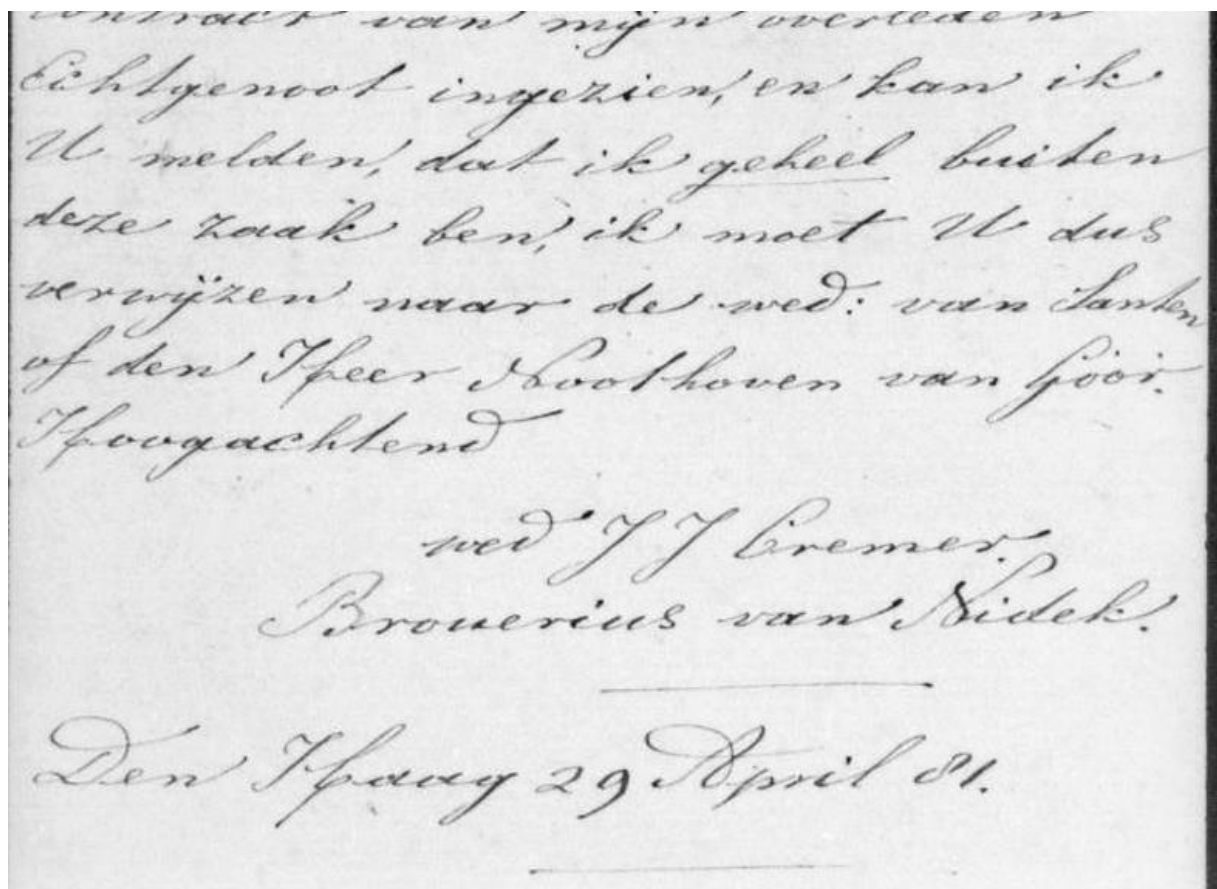 contract van mijn overleden
Echtgenoot ingezien, en kan ik
U melden, dat ik geheel buiten
deze zaak ben, ik moet U dus
verwijzen naar de wed: van Santen
of den Heer Noothoven van Goor.
Hoogachtend
wed J J Cremer.
Brouerius van Nidek.
Den Haag 29 April 81.